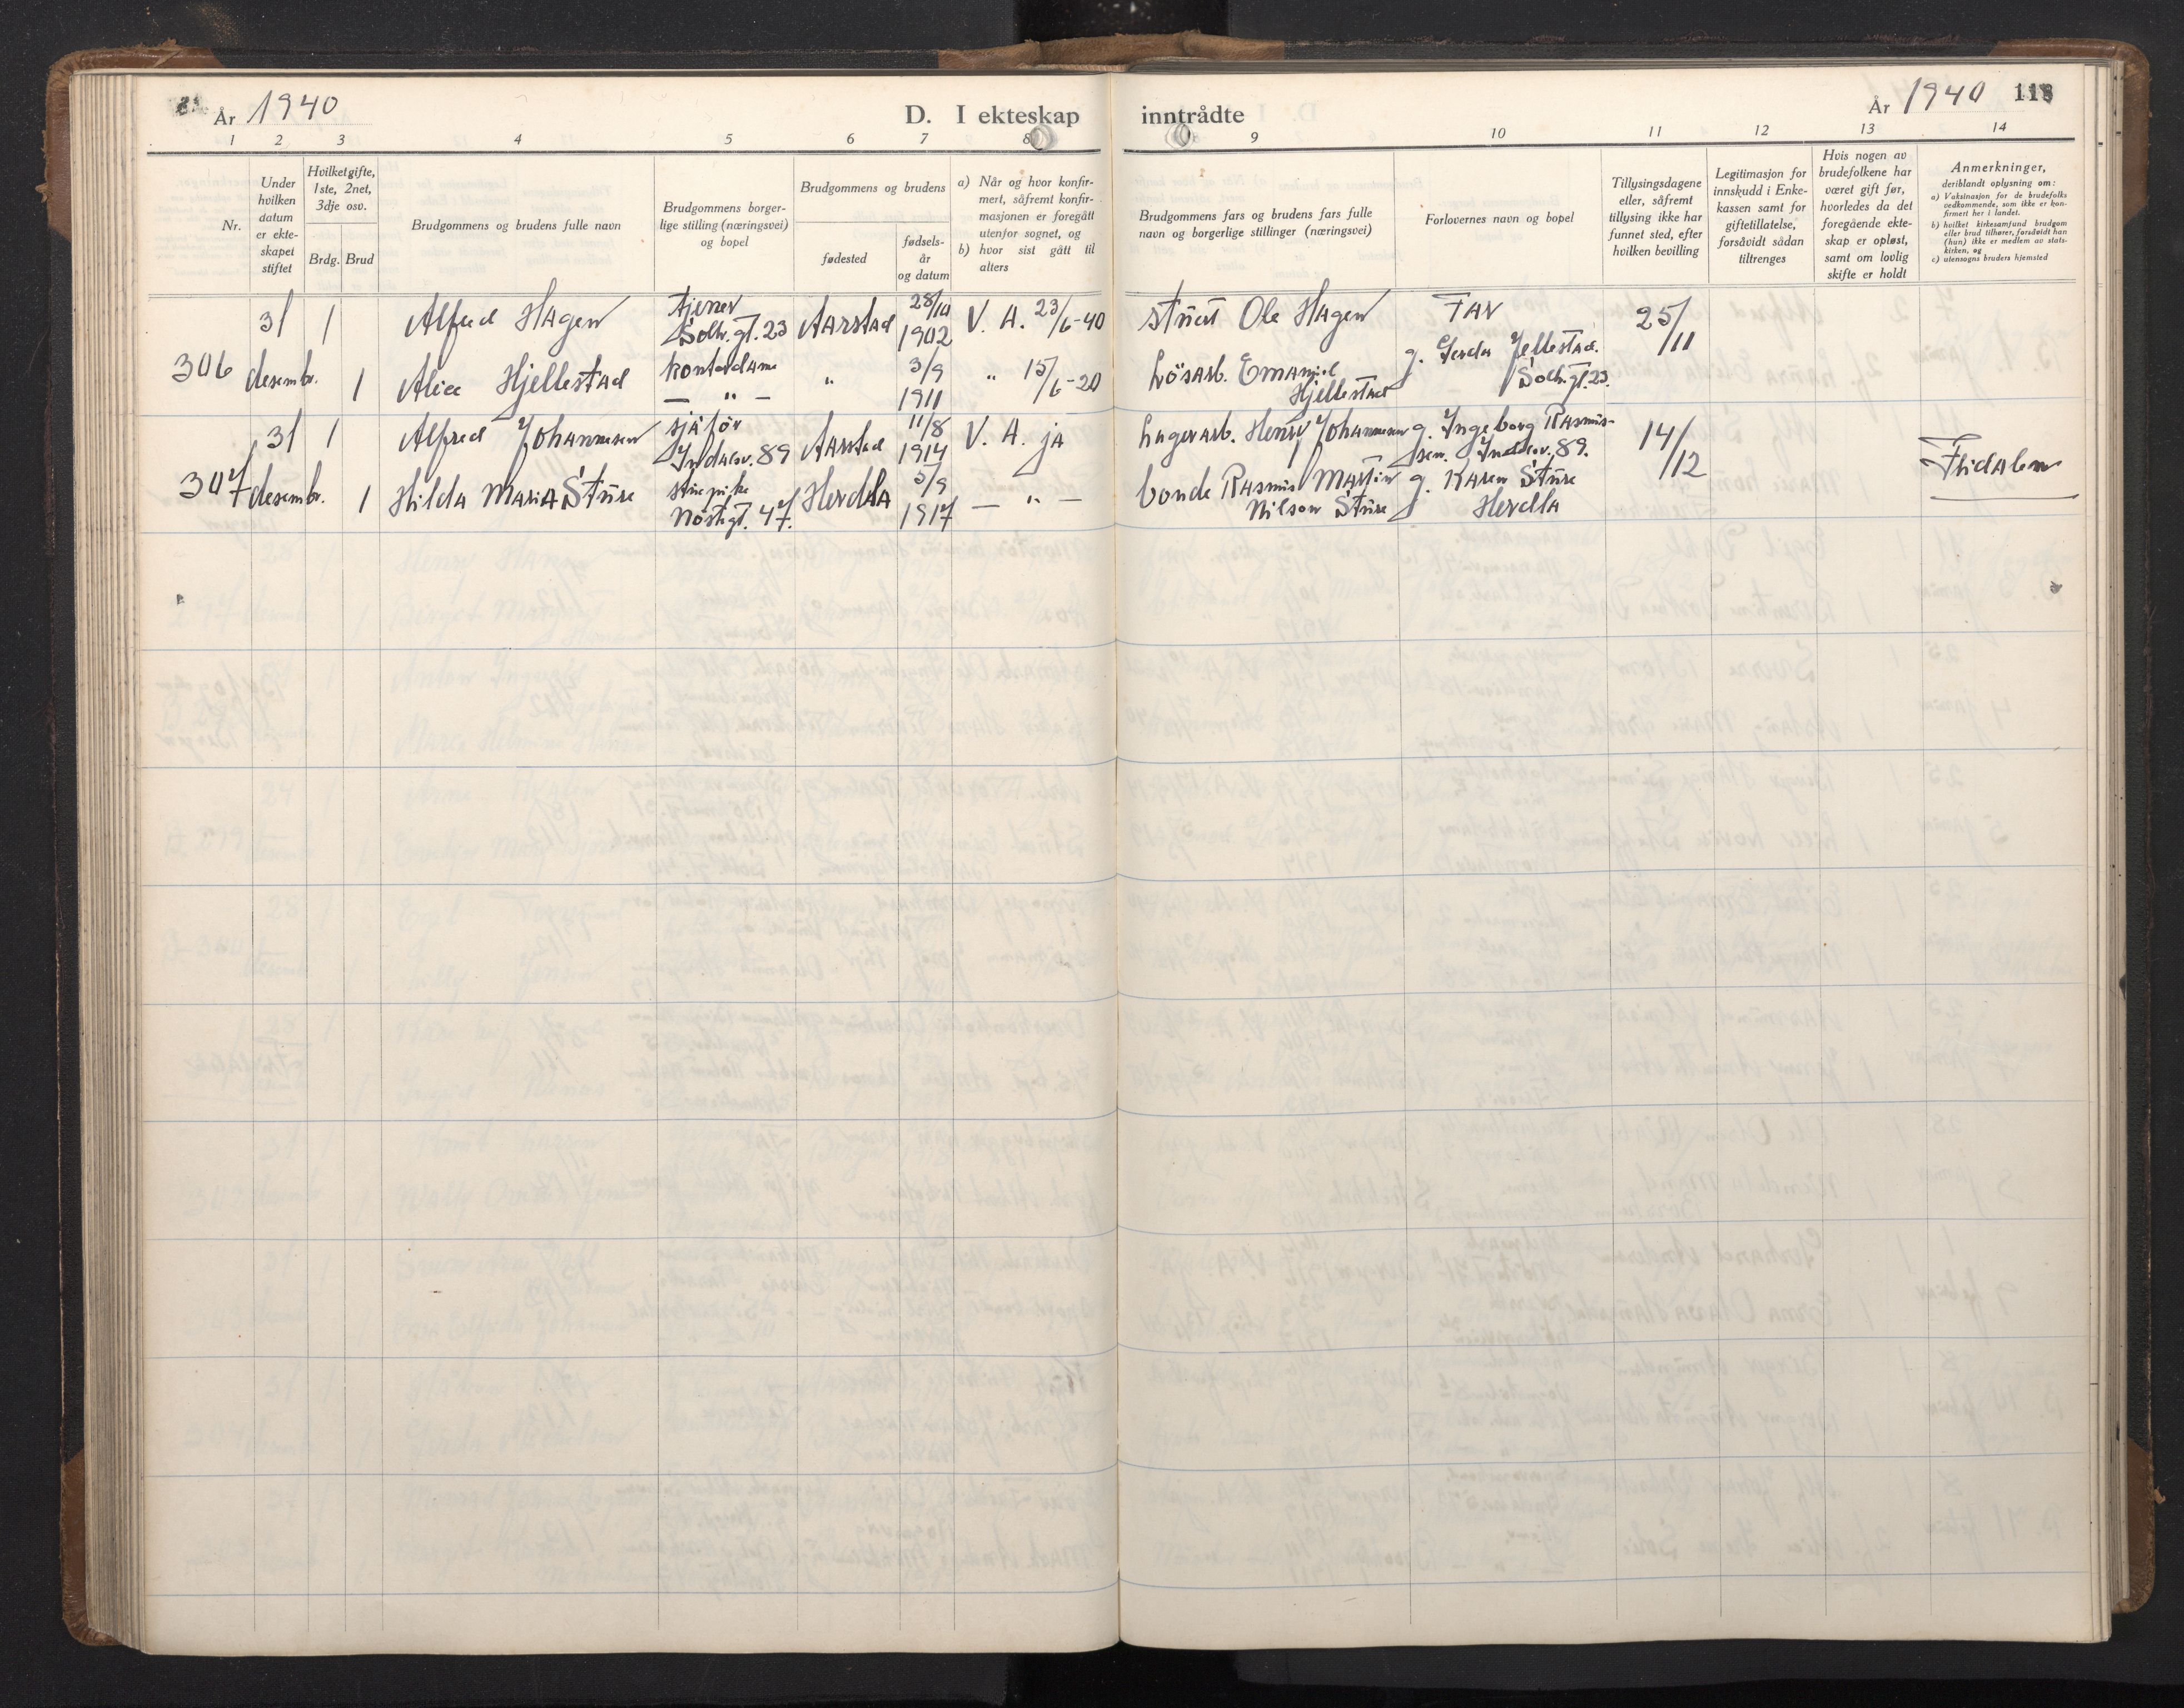 År 1940
D. I ekteskap inntrådte
År 1940 118
1 2 3 4 5 6 7 8 9 10 11 12 13 14
Nr.
Under hvilken datum er ekteskapet stiftet
Hvilket gifte, 1ste, 2net, 3dje osv.
Brdg. Brud
Brudgommens og brudens fulle navn
Brudgommens borgerlige stilling (næringsvei) og bopel
Brudgommens og brudens
fødested
fødselsår og datum
a) Når og hvor konfirmert, såfremt konfirmasjonen er foregått utenfor sognet, og
b) hvor sist gått til alters
Brudgommens fars og brudens fars fulle navn og borgerlige stillinger (næringsvei)
Forlovernes navn og bopel
Tillysingsdagene eller, såfremt tillysing ikke har funnet sted, efter hvilken bevilling
Legitimasjon for innskudd i Enkekassen samt for giftetillatelse, forsåvidt sådan tiltrenges
Hvis nogen av brudefolkene har været gift før, hvorledes da det foregående ekteskap er opløst, samt om lovlig skifte er holdt
Anmerkninger,
deriblandt oplysning om:
a) Vaksinasjon for de brudefolks vedkommende, som ikke er konfirmert her i landet.
b) hvilket kirkesamfund brudgom eller brud tilhører, forsåvidt han (hun) ikke er medlem av statskirken, og
c) utensogns bruders hjemsted
31 1 Alfred Hagen tjener Solh.gt. 23 Aarstad 28/10 1902 V. A. 23/6-40 stuert Ole Hagen Far 25/11
306 desembr. 1 Alice Hjellestad kontordame — " — " 3/9 1911 " 15/6-20 lösarb. Emanuel Hjellestad g. Gerda Jellestad. Solh.gt. 23.
31 1 Alfred Johannesen sjåför Indalsv. 89 Aarstad 11/8 1914 V. A. ja lagerarb. Henry Johannesen g. Ingeborg Rasmussen. Indalsv. 89. 14/12
307 desembr. 1 Hilda Maria Sture stuepike Nöstegt. 47. Herdla 5/9 1917 — " — bonde Rasmus Martin Nilson Sture g. Karen Sture Herdla Fridalen